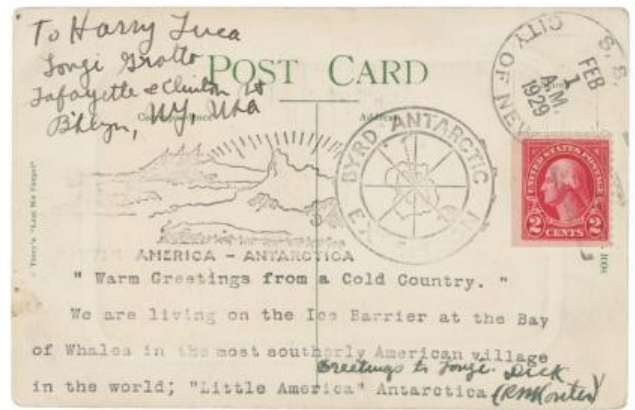 To Harry Luca
Long's Grotto
Lafayette & Clinton St
B'klyn, NY, USA
POST CARD
Correspondence
Address
S. S. CITY OF NEW
FEB
1
A.M.
1929
BYRD ANTARCTIC
UNITED STATES POSTAGE
2 CENTS 2
AMERICA - ANTARCTICA
" Warm Greetings from a Cold Country. "
We are living on the Ice Barrier at the Bay
of Whales in the most southerly American village
Greetings to Dick
in the world; "Little America" Antarctica